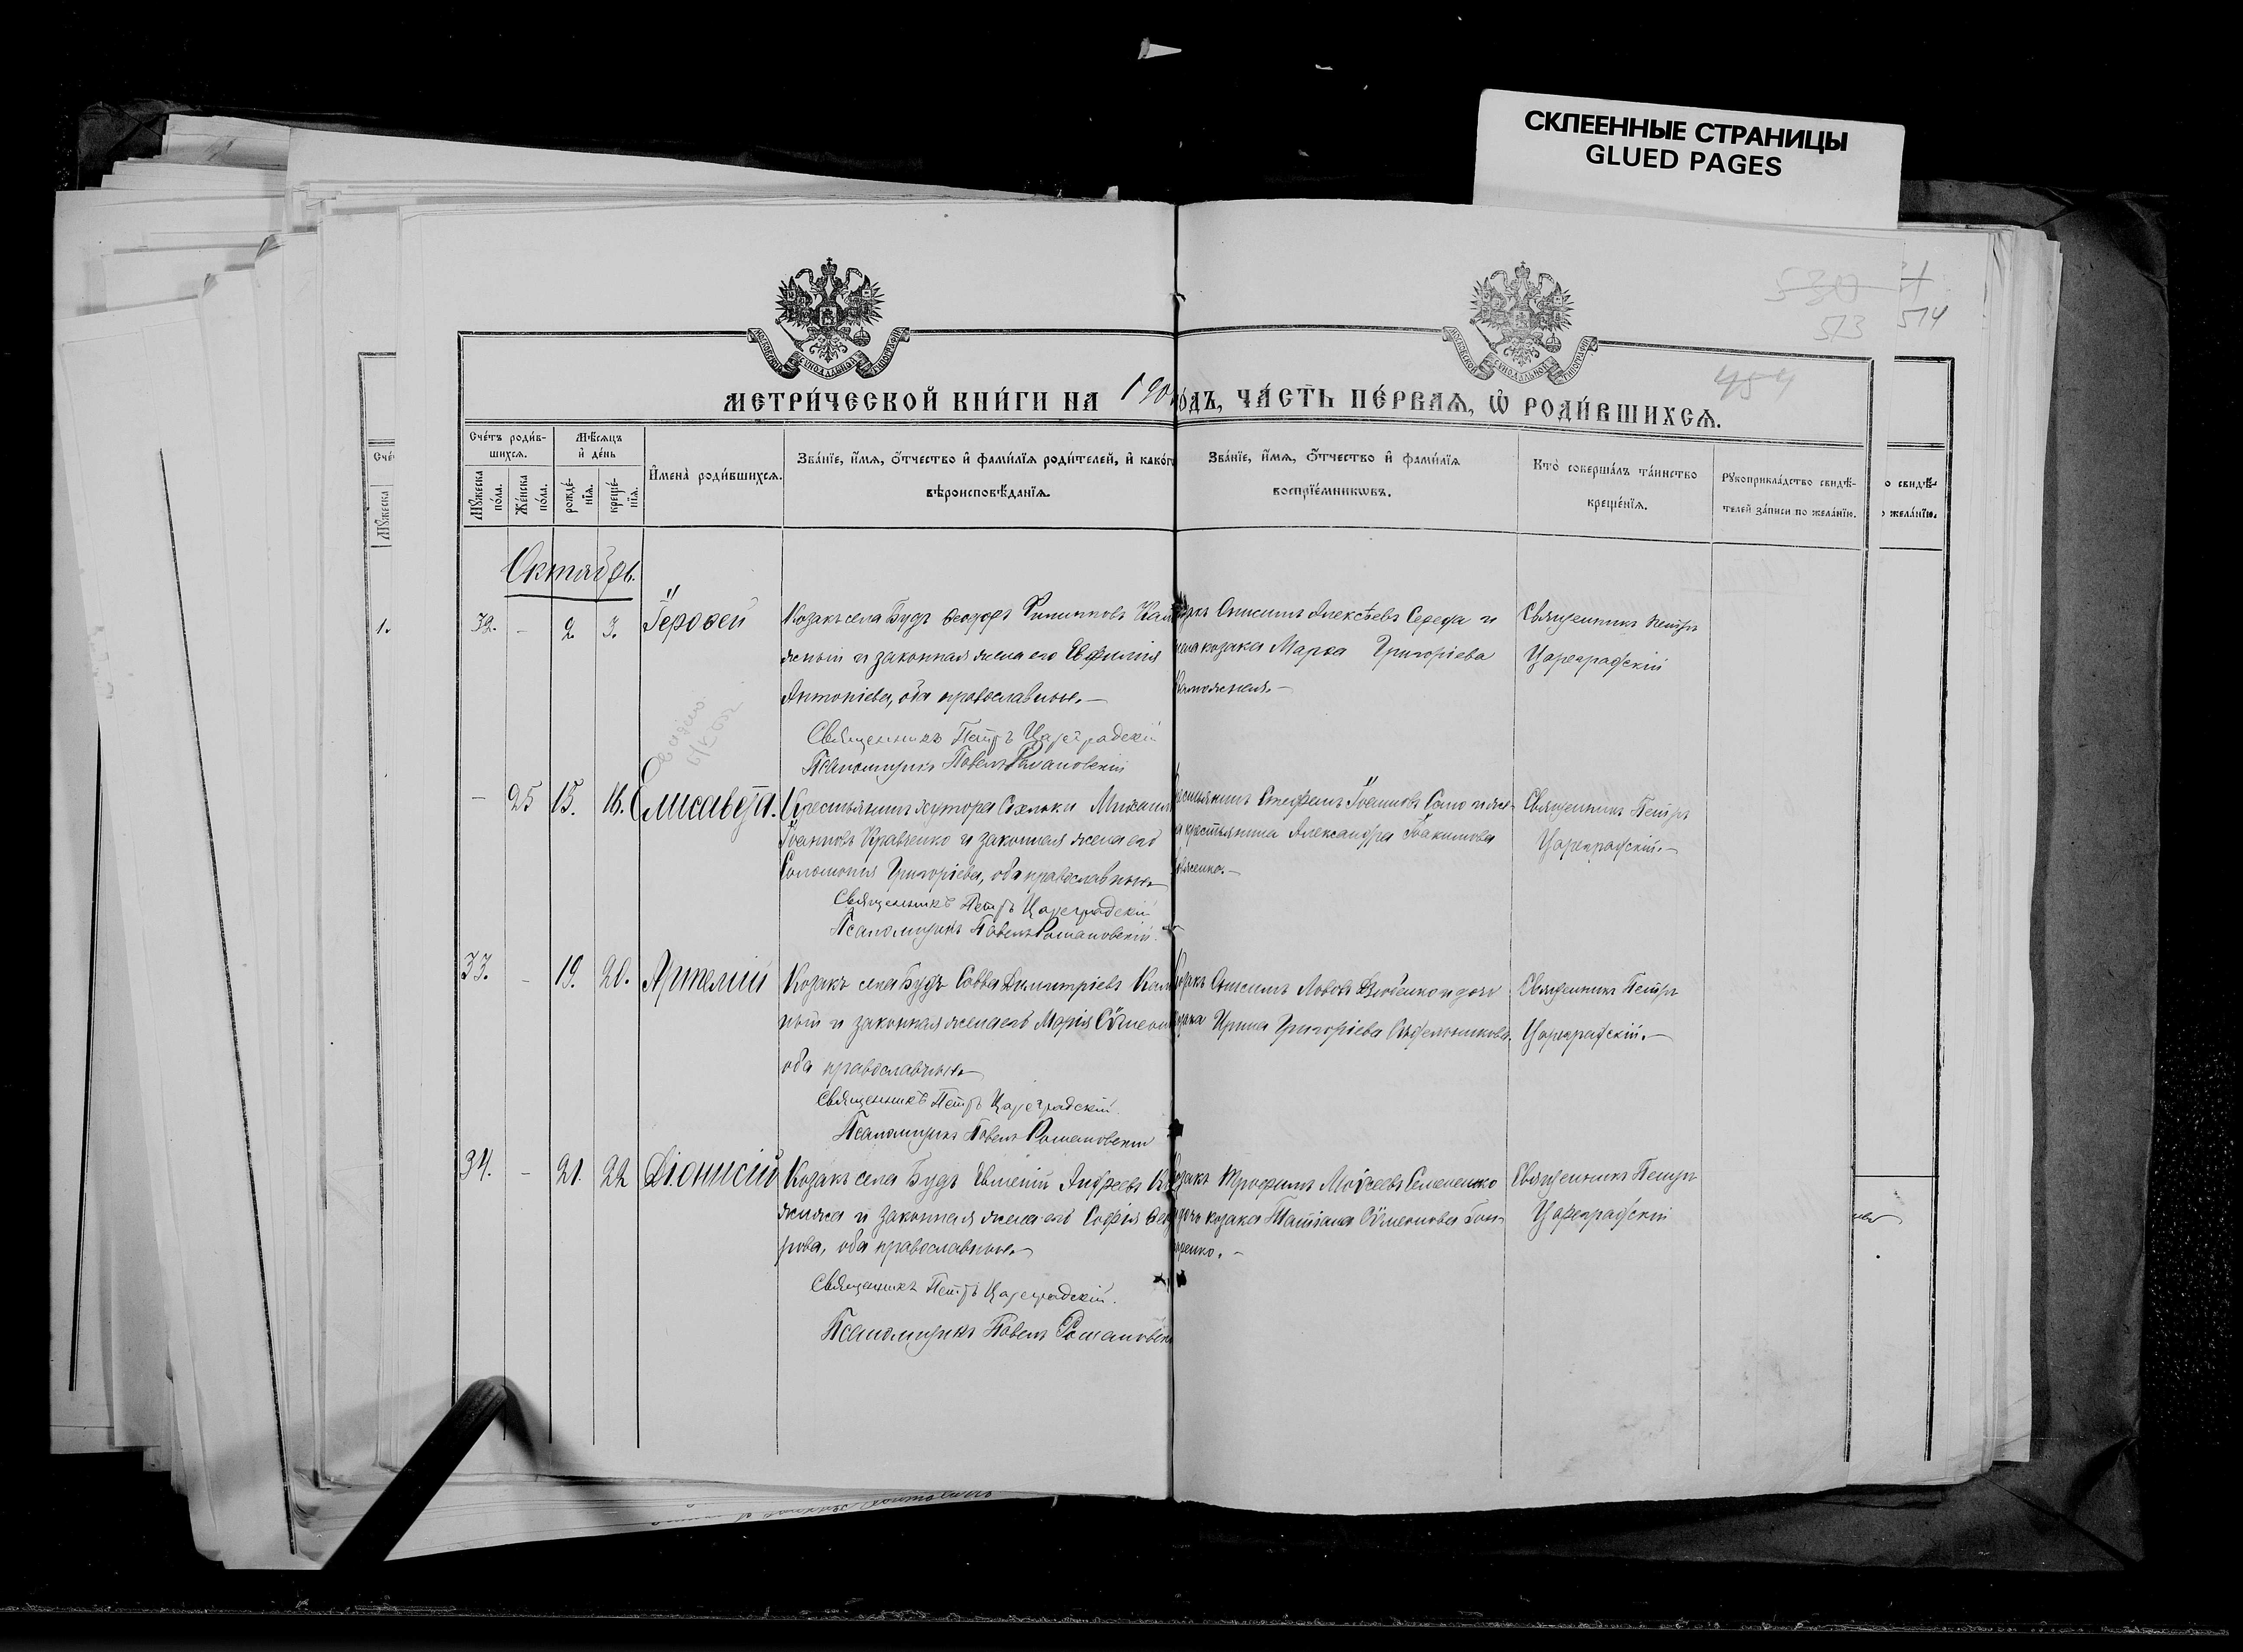 СКЛЕЕННЫЕ СТРАНИЦЫ
GLUED PAGES
530
513
514
454
МЕТРИ́ЧЕСКОЙ КНИ́ГИ НА 190
О́ДЪ, ЧА́СТЬ ПЕ́РВАЯ, Ѡ҆ РОДИ́ВШИХСЯ.
Сче́тъ роди́в-
шихся.
Мѣ́сяцъ
и҆ де́нь
Мꙋ́жеска по́ла.
Же́нска по́ла.
рожде́-
нїѧ.
креще́-
нїѧ.
И҆мена̀ роди́вшихся.
Зва́нїе, и҆́мя, ѻ҆́тчество и҆ фами́лїя роди́телей, и҆ како́г
вѣроисповѣ́данїя.
Зва́нїе, и҆́мя, ѻ҆́тчество и҆ фами́лїя
воспрїе́мниковъ.
Кто̀ соверша́лъ та́инство
креще́нїя.
Рꙋкоприкла́дство свидѣ́-
телей за́писи по жела́нїю.
о свидѣ́-
жела́нїю.
Октябрь.
1.
32. - 2. 3. Іероѳей
Козакъ села Будъ Ѳеодоръ
жный и законная жена его Евфимія
Антоніева, оба православные. —
Священникъ Петръ Цареградскій
Псаломщикъ Павелъ Романовскій
Онисимъ Алексѣевъ Середа и
жена козака Марѳа Григоріева
Священникъ Петръ
Цареградскій
- 25 15. 16. Елисавета.
Крестьянинъ хутора Михаил
Іоанновъ Кравченко и законная жена его
Соломонія Григоріева, оба православные
Священникъ Петръ Цареградскій
Псаломщикъ Павелъ Романовскій.
Стефанъ Іоанновъ и же-
крестьянина Александра Іоакимова
Священникъ Петръ
Цареградскій. —
33. - 19. 20. Артемій
Козакъ села Будъ Савва Димитріевъ Кам
ный и законная жена его Марія Сѵмеон
оба православные
Священникъ Петръ Цареградскій
Псаломщикъ Павелъ Романовскій
Козакъ Онисимъ и дочь
козака Ирина Григоріева
Священникъ Петръ
Цареградскій. —
34. - 21. 22 Діонисій
Козакъ села Будъ Евменій Андреевъ
и законная жена его Софія Ѳео
рова, оба православные
Священникъ Петръ Цареградскій.
Псаломщикъ Павелъ Романовск
Козакъ Трофимъ Моѵсеевъ Семененко
дочь козака Татіана Сѵмеонова Гон-
чаренко. —
Священникъ Петръ
Цареградскій